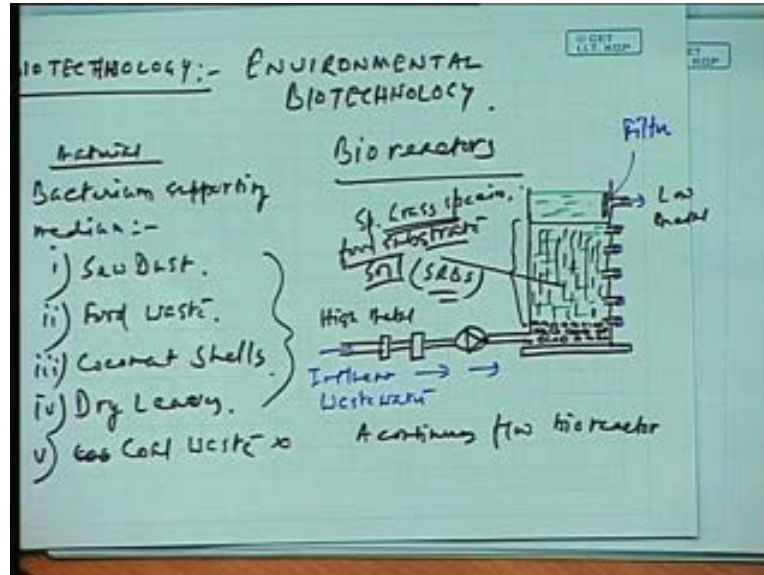 IOTECHNOLOGY:- ENVIRONMENTAL
BIOTECHNOLOGY.
© CET
I.I.T. KGP
Material
Bacterium supporting
median:-
i) Saw Dust.
ii) Food waste.
iii) Coconut Shells.
iv) Dry Leaves.
v) Coal Waste x
Bioreactors
Sp. Grass species,
food substrate
Soil (SRBs)
Filter
Low
Metal
High Metal
Influent
Wastewater
A continuous flow bioreactor